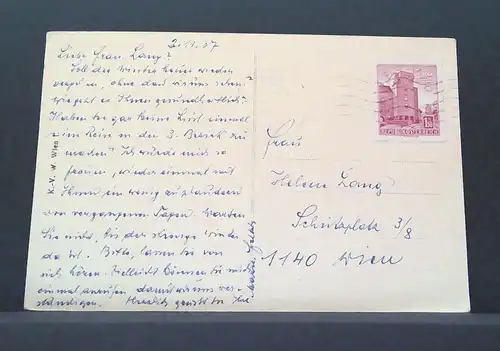 2.11.67
Liebe Frau Lang!
Soll der Winter heuer wieder
vergehen, ohne daß wir uns sehen
wie geht es Ihnen gesundheitlich?
Haben Sie gar keine Lust einmal
eine Reise in den 3. Bezirk zu
machen? Ich würde mich so
freuen, wieder einmal mit
Ihnen ein wenig zu plaudern
von vergangenen Tagen. Warten
Sie nicht, bis der strenge Winter
da ist. Bitte, lassen Sie von
sich hören. Vielleicht können Sie mich
einmal anrufen damit wir uns ver-
ständigen. Herzlich grüßt Sie Ihre
Maria
K.-V. W. Wien
REPUBLIK ÖSTERREICH
Frau
Helene Lang
3/8
1140 Wien